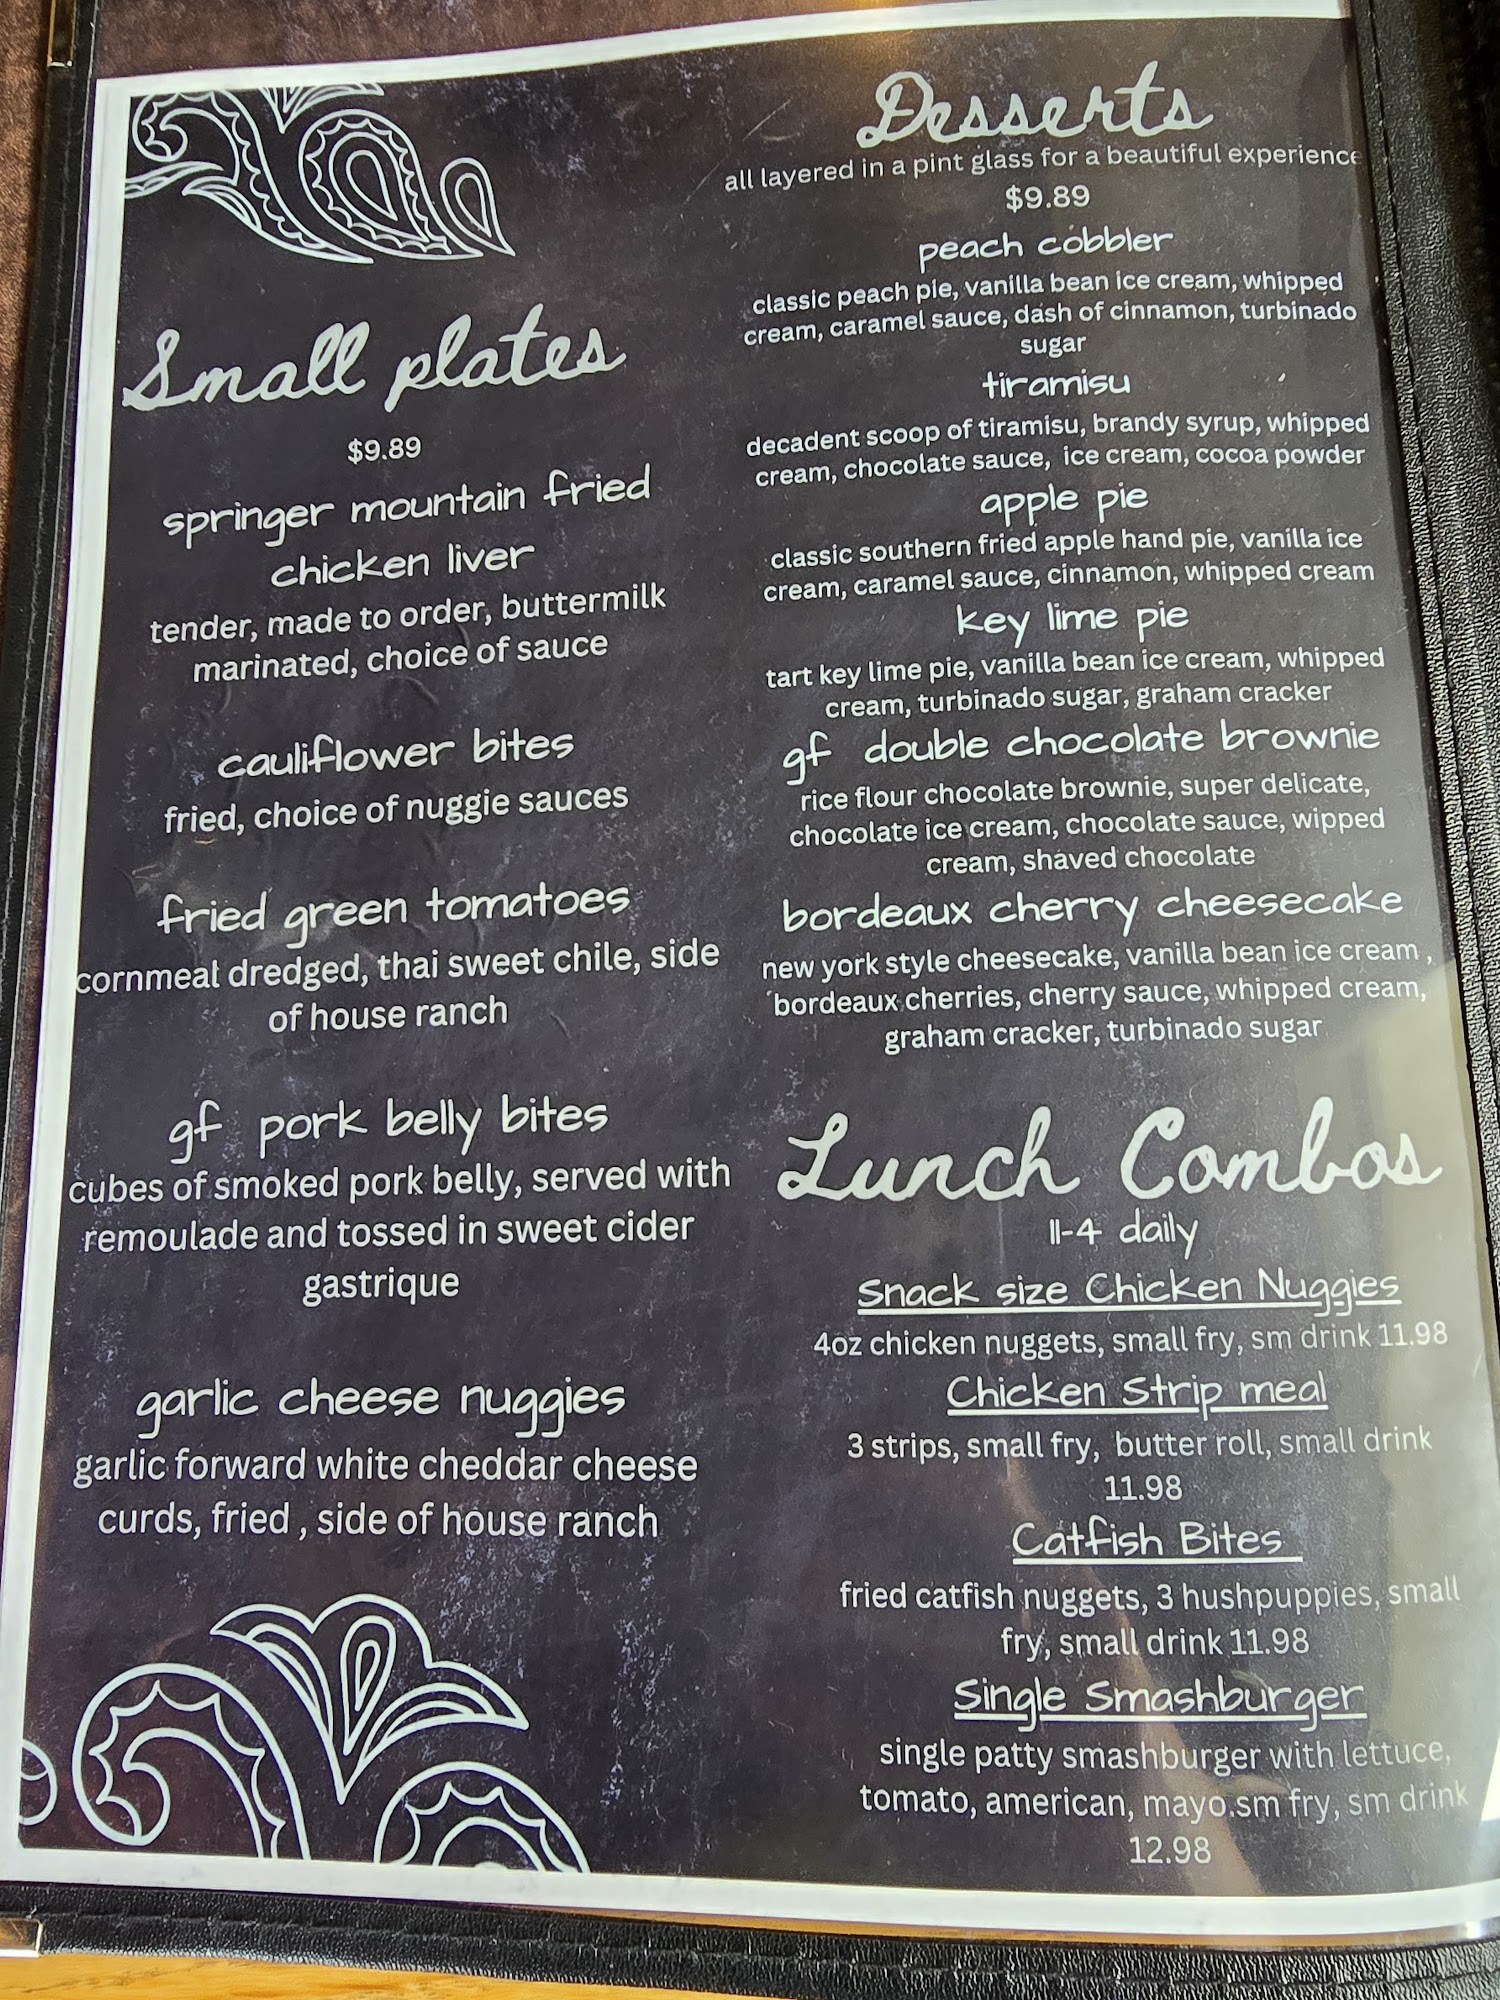 Small plates
$9.89
springer mountain fried
chicken liver
tender, made to order, buttermilk
marinated, choice of sauce
cauliflower bites
fried, choice of nuggie sauces
fried green tomatoes
cornmeal dredged, thai sweet chile, side
of house ranch
gf pork belly bites
cubes of smoked pork belly, served with
remoulade and tossed in sweet cider
gastrique
garlic cheese nuggies
garlic forward white cheddar cheese
curds, fried , side of house ranch
Desserts
all layered in a pint glass for a beautiful experience
$9.89
peach cobbler
classic peach pie, vanilla bean ice cream, whipped
cream, caramel sauce, dash of cinnamon, turbinado
sugar
tiramisu
decadent scoop of tiramisu, brandy syrup, whipped
cream, chocolate sauce, ice cream, cocoa powder
apple pie
classic southern fried apple hand pie, vanilla ice
cream, caramel sauce, cinnamon, whipped cream
key lime pie
tart key lime pie, vanilla bean ice cream, whipped
cream, turbinado sugar, graham cracker
gf double chocolate brownie
rice flour chocolate brownie, super delicate,
chocolate ice cream, chocolate sauce, wipped
cream, shaved chocolate
bordeaux cherry cheesecake
new york style cheesecake, vanilla bean ice cream ,
bordeaux cherries, cherry sauce, whipped cream,
graham cracker, turbinado sugar
Lunch Combos
11-4 daily
Snack size Chicken Nuggies
4oz chicken nuggets, small fry, sm drink 11.98
Chicken Strip meal
3 strips, small fry, butter roll, small drink
11.98
Catfish Bites
fried catfish nuggets, 3 hushpuppies, small
fry, small drink 11.98
Single Smashburger
single patty smashburger with lettuce,
tomato, american, mayo.sm fry, sm drink
12.98